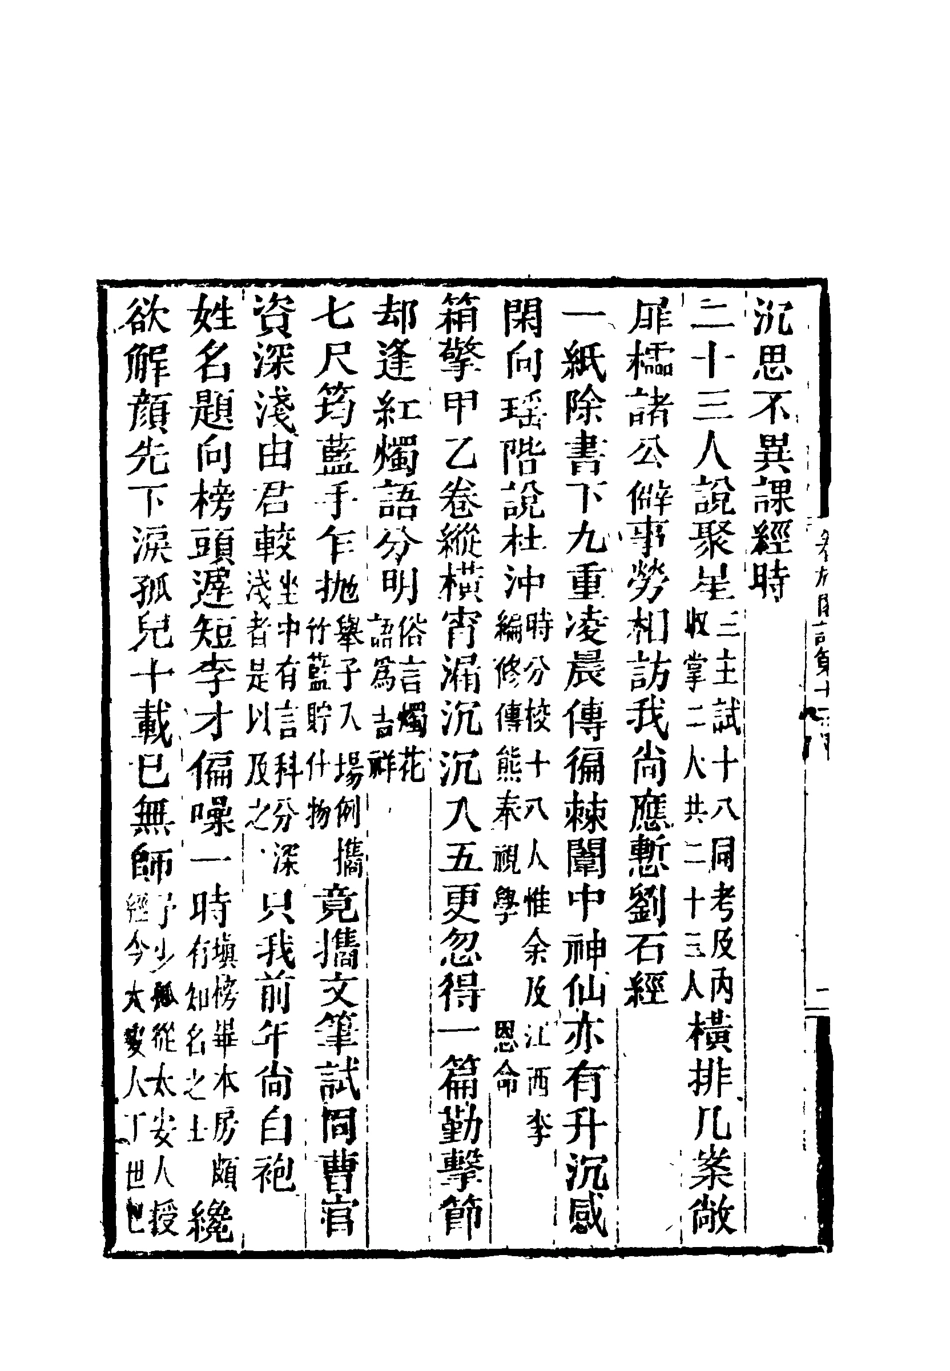 沉思不異課經時
二十三人說聚星三主試十八同考及內收掌二人共二十三人橫排几案敞
扉櫺諸公僻事勞相訪我尚應慙劉石經
一紙除書下九重凌晨傳徧棘闈中神仙亦有升沉感
閑向瑶階說杜沖時分校十八人惟余及江西李編修傳熊奉視學恩命
箱擎甲乙卷縱橫宵漏沉沉入五更忽得一篇勤擊節
却逢紅燭語分明俗言燭花語爲吉祥
七尺筠藍手乍拋舉子入場例攜竹藍貯什物竟攜文筆試同曹官
資深淺由君較坐中有言科分深淺者是以及之只我前年尚白袍
姓名題向榜頭遲短李才偏噪一時塡榜畢本房頗有知名之士纔
欲解顏先下淚孤兒十載已無師予少孤從太安人授經今太安人下世已
卷施閣詩第十